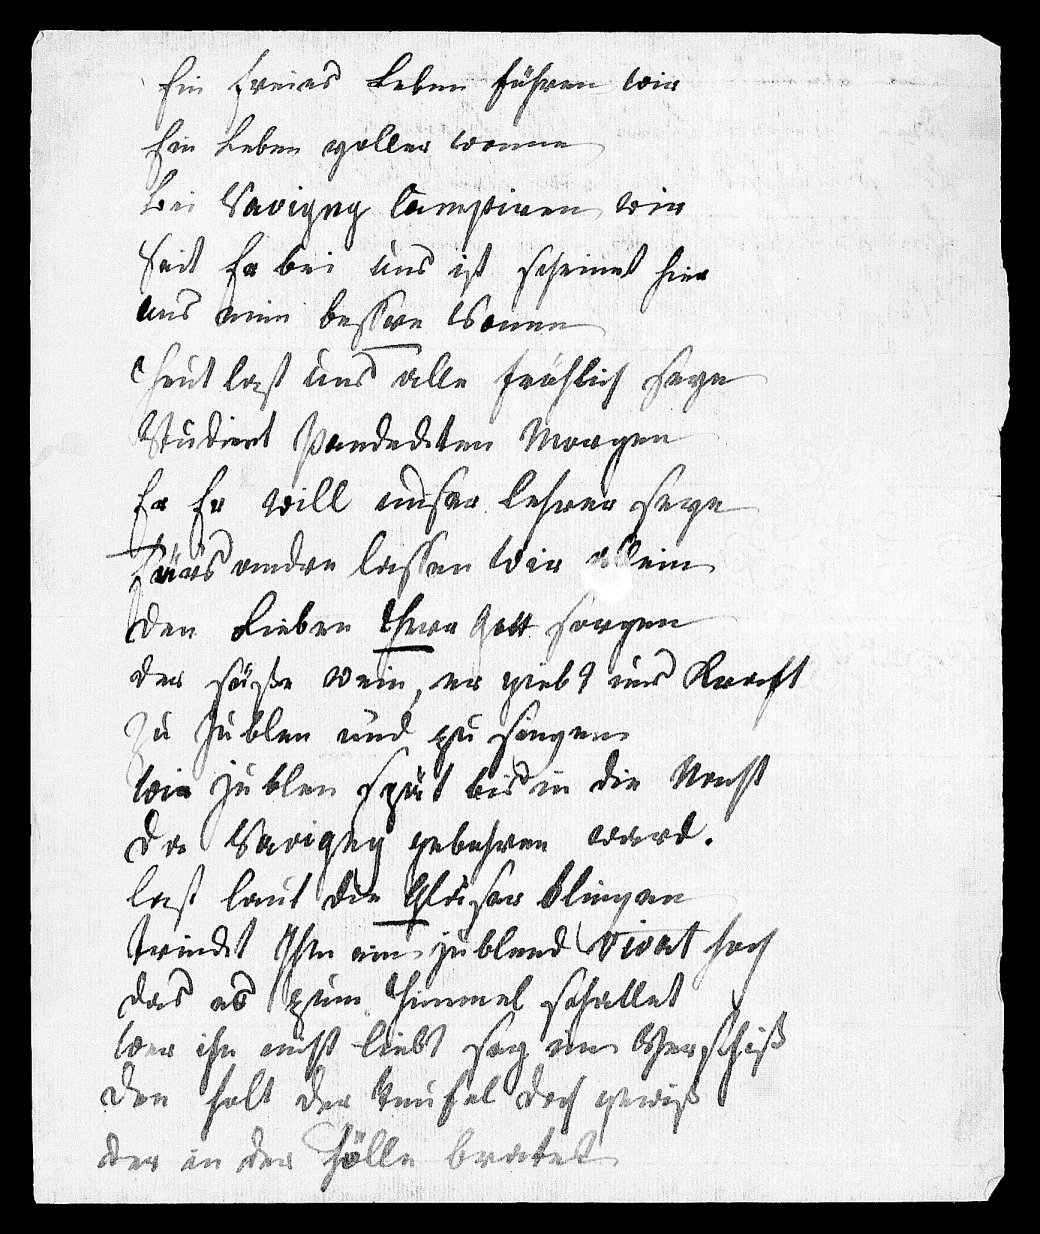 Ein freies Leben führen wir
Ein Leben voller Wonne
Bei Savigny Campiren wir
Seit Er bei uns ist scheinet hier
uns eine beßre Sonne
Heut last uns alle fröhlich seyn
Studiert Pandeckten Morgen
Er Er will unser Lehrer seyn
fürs andre lassen wir allein
den Lieben Herr Gott sorgen
der süße Wein, er giebt uns Kraft
zu Jublen und zu singen
Wir jublen spät bis in die Nacht
Da Savigny gebohren ward.
last laut die Gläser klingen
trinckt Ihm ein jublend Vivat hoch
das es zum Himmel schallet
wer ihn nicht liebt sey im Verschiß
den holt der Teufel doch gewiß
der in der Hölle bratet